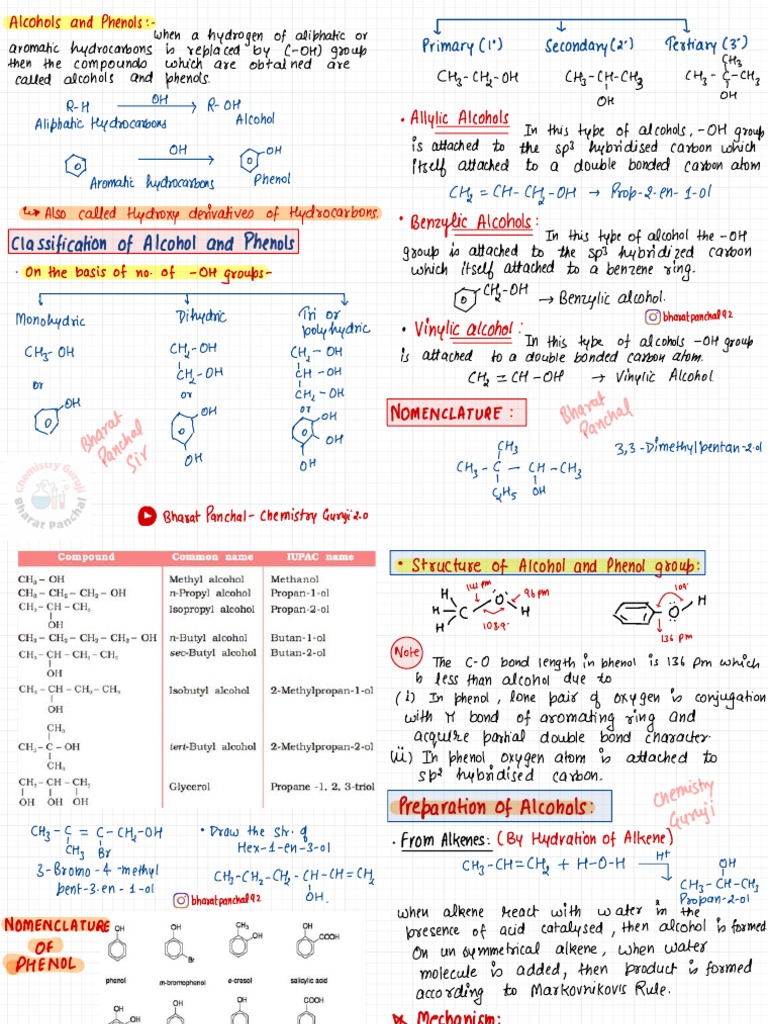 Alcohols and Phenols:-
when a hydrogen of aliphatic or
aromatic hydrocarbons is replaced by (-OH) group
then the compounds which are obtained are
called alcohols and phenols.
R-H OH R-OH
Aliphatic Hydrocarbons Alcohol
OH OH
Aromatic hydrocarbons Phenol
Also called Hydroxy derivatives of Hydrocarbons.
Classification of Alcohol and Phenols
• On the basis of no. of -OH groups-
Monohydric Dihydric Tri or polyhydric
CH3-OH CH2-OH CH2-OH
CH2-OH CH-OH
CH2-OH
or or or
OH OH OH
OH OH
OH
Bharat
Panchal
Sir
Chemistry Guruji
Bharat Panchal
Bharat Panchal - Chemistry Guruji 2.0
Primary (1°) Secondary (2°) Tertiary (3°)
CH3
CH3-CH2-OH CH3-CH-CH3 CH3-C-CH3
OH OH
• Allylic Alcohols
In this type of alcohols, -OH group
is attached to the sp3 hybridised carbon which
itself attached to a double bonded carbon atom
CH2=CH-CH2-OH → Prop-2-en-1-ol
• Benzylic Alcohols:
In this type of alcohol the -OH
group is attached to the sp3 hybridized carbon
which itself attached to a benzene ring.
CH2-OH → Benzylic alcohol.
bharatpanchal92
• Vinylic alcohol:
In this type of alcohols -OH group
is attached to a double bonded carbon atom.
CH2=CH-OH → Vinylic Alcohol
NOMENCLATURE:
Bharat
Panchal
CH3
CH3-C-CH-CH3
C2H5 OH
3,3-Dimethylpentan-2-ol
Compound Common name IUPAC name
CH3 – OH Methyl alcohol Methanol
CH3 – CH2 – CH2 – OH n-Propyl alcohol Propan-1-ol
CH3 – CH – CH3 Isopropyl alcohol Propan-2-ol
OH
CH3 – CH2 – CH2 – CH2 – OH n-Butyl alcohol Butan-1-ol
CH3 – CH – CH2 – CH3 sec-Butyl alcohol Butan-2-ol
OH
CH3 – CH – CH2 – CH3 Isobutyl alcohol 2-Methylpropan-1-ol
OH
CH3
CH3 – C – OH tert-Butyl alcohol 2-Methylpropan-2-ol
CH3
CH2 – CH – CH2 Glycerol Propane -1, 2, 3-triol
OH OH OH
CH3-C=C-CH2-OH
CH3 Br
3-Bromo-4-methyl
pent-3-en-1-ol
• Draw the str. of
Hex-1-en-3-ol
CH3-CH2-CH2-CH-CH=CH2
OH.
bharatpanchal92
NOMENCLATURE
OF
PHENOL
OH OH CH3 OH
Br OH COOH
phenol m-bromophenol o-cresol salicylic acid
OH OH OH COOH
• Structure of Alcohol and Phenol group:
H 96 pm
H C O H
H 108.9°
109°
O H
136 pm
Note
The C-O bond length in phenol is 136 pm which
is less than alcohol due to
(i) In phenol, lone pair of oxygen is conjugation
with π bond of aromating ring and
acquire partial double bond character
(ii) In phenol oxygen atom is attached to
sp2 hybridised carbon.
Chemistry
Guruji
Preparation of Alcohols:
• From Alkenes: (By Hydration of Alkene)
CH3-CH=CH2 + H-O-H H+
OH
CH3-CH-CH3
Propan-2-ol
when alkene react with water in the
presence of acid catalysed, then alcohol is formed
On un symmetrical alkene, when water
molecule is added, then product is formed
according to Markovnikovis Rule.
Mechanism: